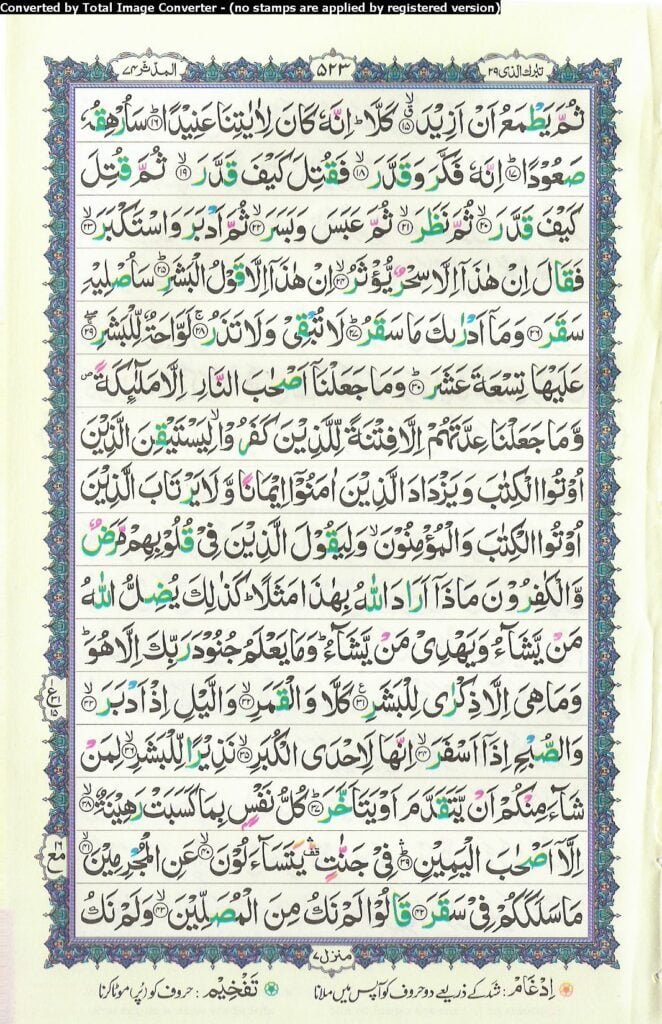 Converted by Total Image Converter - (no stamps are applied by registered version)
تبٰرك الذی ٢٩
٥٢٣
المدّثّر ٧٤
ثُمَّ يَطْمَعُ اَنْ اَزِيْدَ ۙ﴿۱۵﴾ كَلَّا ؕ اِنَّهٗ كَانَ لِاٰيٰتِنَا عَنِيْدًا ؕ﴿۱۶﴾ سَاُرْهِقُهٗ
صَعُوْدًا ؕ﴿۱۷﴾ اِنَّهٗ فَكَّرَ وَقَدَّرَ ۙ﴿۱۸﴾ فَقُتِلَ كَيْفَ قَدَّرَ ۙ﴿۱۹﴾ ثُمَّ قُتِلَ
كَيْفَ قَدَّرَ ۙ﴿۲۰﴾ ثُمَّ نَظَرَ ۙ﴿۲۱﴾ ثُمَّ عَبَسَ وَبَسَرَ ۙ﴿۲۲﴾ ثُمَّ اَدْبَرَ وَاسْتَكْبَرَ ۙ﴿۲۳﴾
فَقَالَ اِنْ هٰذَاۤ اِلَّا سِحْرٌ يُّؤْثَرُ ۙ﴿۲۴﴾ اِنْ هٰذَاۤ اِلَّا قَوْلُ الْبَشَرِ ؕ﴿۲۵﴾ سَاُصْلِيْهِ
سَقَرَ ﴿۲۶﴾ وَمَاۤ اَدْرٰىكَ مَا سَقَرُ ؕ﴿۲۷﴾ لَا تُبْقِىْ وَلَا تَذَرُ ۚ﴿۲۸﴾ لَوَّاحَةٌ لِّلْبَشَرِ ۖ﴿۲۹﴾
عَلَيْهَا تِسْعَةَ عَشَرَ ؕ﴿۳۰﴾ وَمَا جَعَلْنَاۤ اَصْحٰبَ النَّارِ اِلَّا مَلٰٓئِكَةً ۪
وَّمَا جَعَلْنَا عِدَّتَهُمْ اِلَّا فِتْنَةً لِّلَّذِيْنَ كَفَرُوْا ۙ لِيَسْتَيْقِنَ الَّذِيْنَ
اُوْتُوا الْكِتٰبَ وَيَزْدَادَ الَّذِيْنَ اٰمَنُوْۤا اِيْمَانًا وَّلَا يَرْتَابَ الَّذِيْنَ
اُوْتُوا الْكِتٰبَ وَالْمُؤْمِنُوْنَ ۙ وَلِيَقُوْلَ الَّذِيْنَ فِىْ قُلُوْبِهِمْ مَّرَضٌ
وَّالْكٰفِرُوْنَ مَاذَاۤ اَرَادَ اللّٰهُ بِهٰذَا مَثَلًا ؕ كَذٰلِكَ يُضِلُّ اللّٰهُ
مَنْ يَّشَآءُ وَيَهْدِىْ مَنْ يَّشَآءُ ؕ وَمَا يَعْلَمُ جُنُوْدَ رَبِّكَ اِلَّا هُوَ ؕ
وَمَا هِىَ اِلَّا ذِكْرٰى لِلْبَشَرِ ﴿۳۱﴾ كَلَّا وَالْقَمَرِ ۙ﴿۳۲﴾ وَالَّيْلِ اِذْ اَدْبَرَ ۙ﴿۳۳﴾
وَالصُّبْحِ اِذَاۤ اَسْفَرَ ۙ﴿۳۴﴾ اِنَّهَا لَاِحْدَى الْكُبَرِ ۙ﴿۳۵﴾ نَذِيْرًا لِّلْبَشَرِ ۙ﴿۳۶﴾ لِمَنْ
شَآءَ مِنْكُمْ اَنْ يَّتَقَدَّمَ اَوْ يَتَاَخَّرَ ؕ﴿۳۷﴾ كُلُّ نَفْسٍۭ بِمَا كَسَبَتْ رَهِيْنَةٌ ۙ﴿۳۸﴾
اِلَّاۤ اَصْحٰبَ الْيَمِيْنِ ۛؕ﴿۳۹﴾ فِىْ جَنّٰتٍ ۛ قف يَتَسَآءَلُوْنَ ۙ﴿۴۰﴾ عَنِ الْمُجْرِمِيْنَ ۙ﴿۴۱﴾
مَا سَلَكَكُمْ فِىْ سَقَرَ ﴿۴۲﴾ قَالُوْا لَمْ نَكُ مِنَ الْمُصَلِّيْنَ ۙ﴿۴۳﴾ وَلَمْ نَكُ
منزل ٧
اِدْغَام: شد کے ذریعے دو حروف کو آپس میں ملانا
تَفْخِيْم: حروف کو (پُر) موٹا کرنا